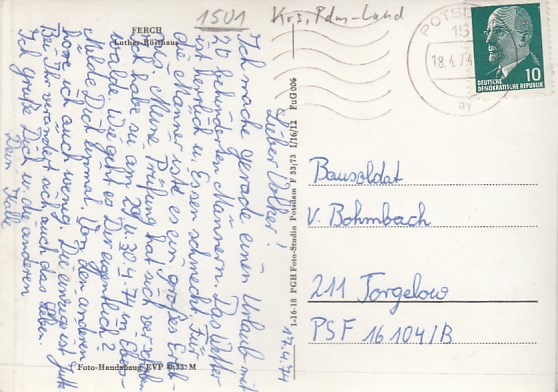 1501 Krs. Pdm-Land
FERCH
Luther-Rüsthaus
17.4.74
Lieber Volker!
Ich mache gerade einen Urlaub mit
20 behinderten Männern. Das Wetter
ist herrlich u. Essen schmeckt. Für
die Männer ist es ein großes Erleb-
nis. Meine Prüfung hat sich verschoben
ich habe sie am 29. u. 30.4.74 in Ebers-
walde. Wie geht es Dir eigentlich?
Melde Dich einmal. Von den anderen
höre ich auch wenig. Die einzige ist Jutta
Bei ihr verändert sich auch das Leben.
Ich grüße Dich u. die anderen
Dein Kalle
Foto-Handabzug EVP 0,35 M
1-16-18 PGH Foto-Studio Potsdam F 33/73 I/16/12 FuG 006
POTSD
15
18.4.74
ay
DEUTSCHE
DEMOKRATISCHE REPUBLIK
10
Bausoldat
v. Bohmbach
211 Torgelow
PSF 16 104/B